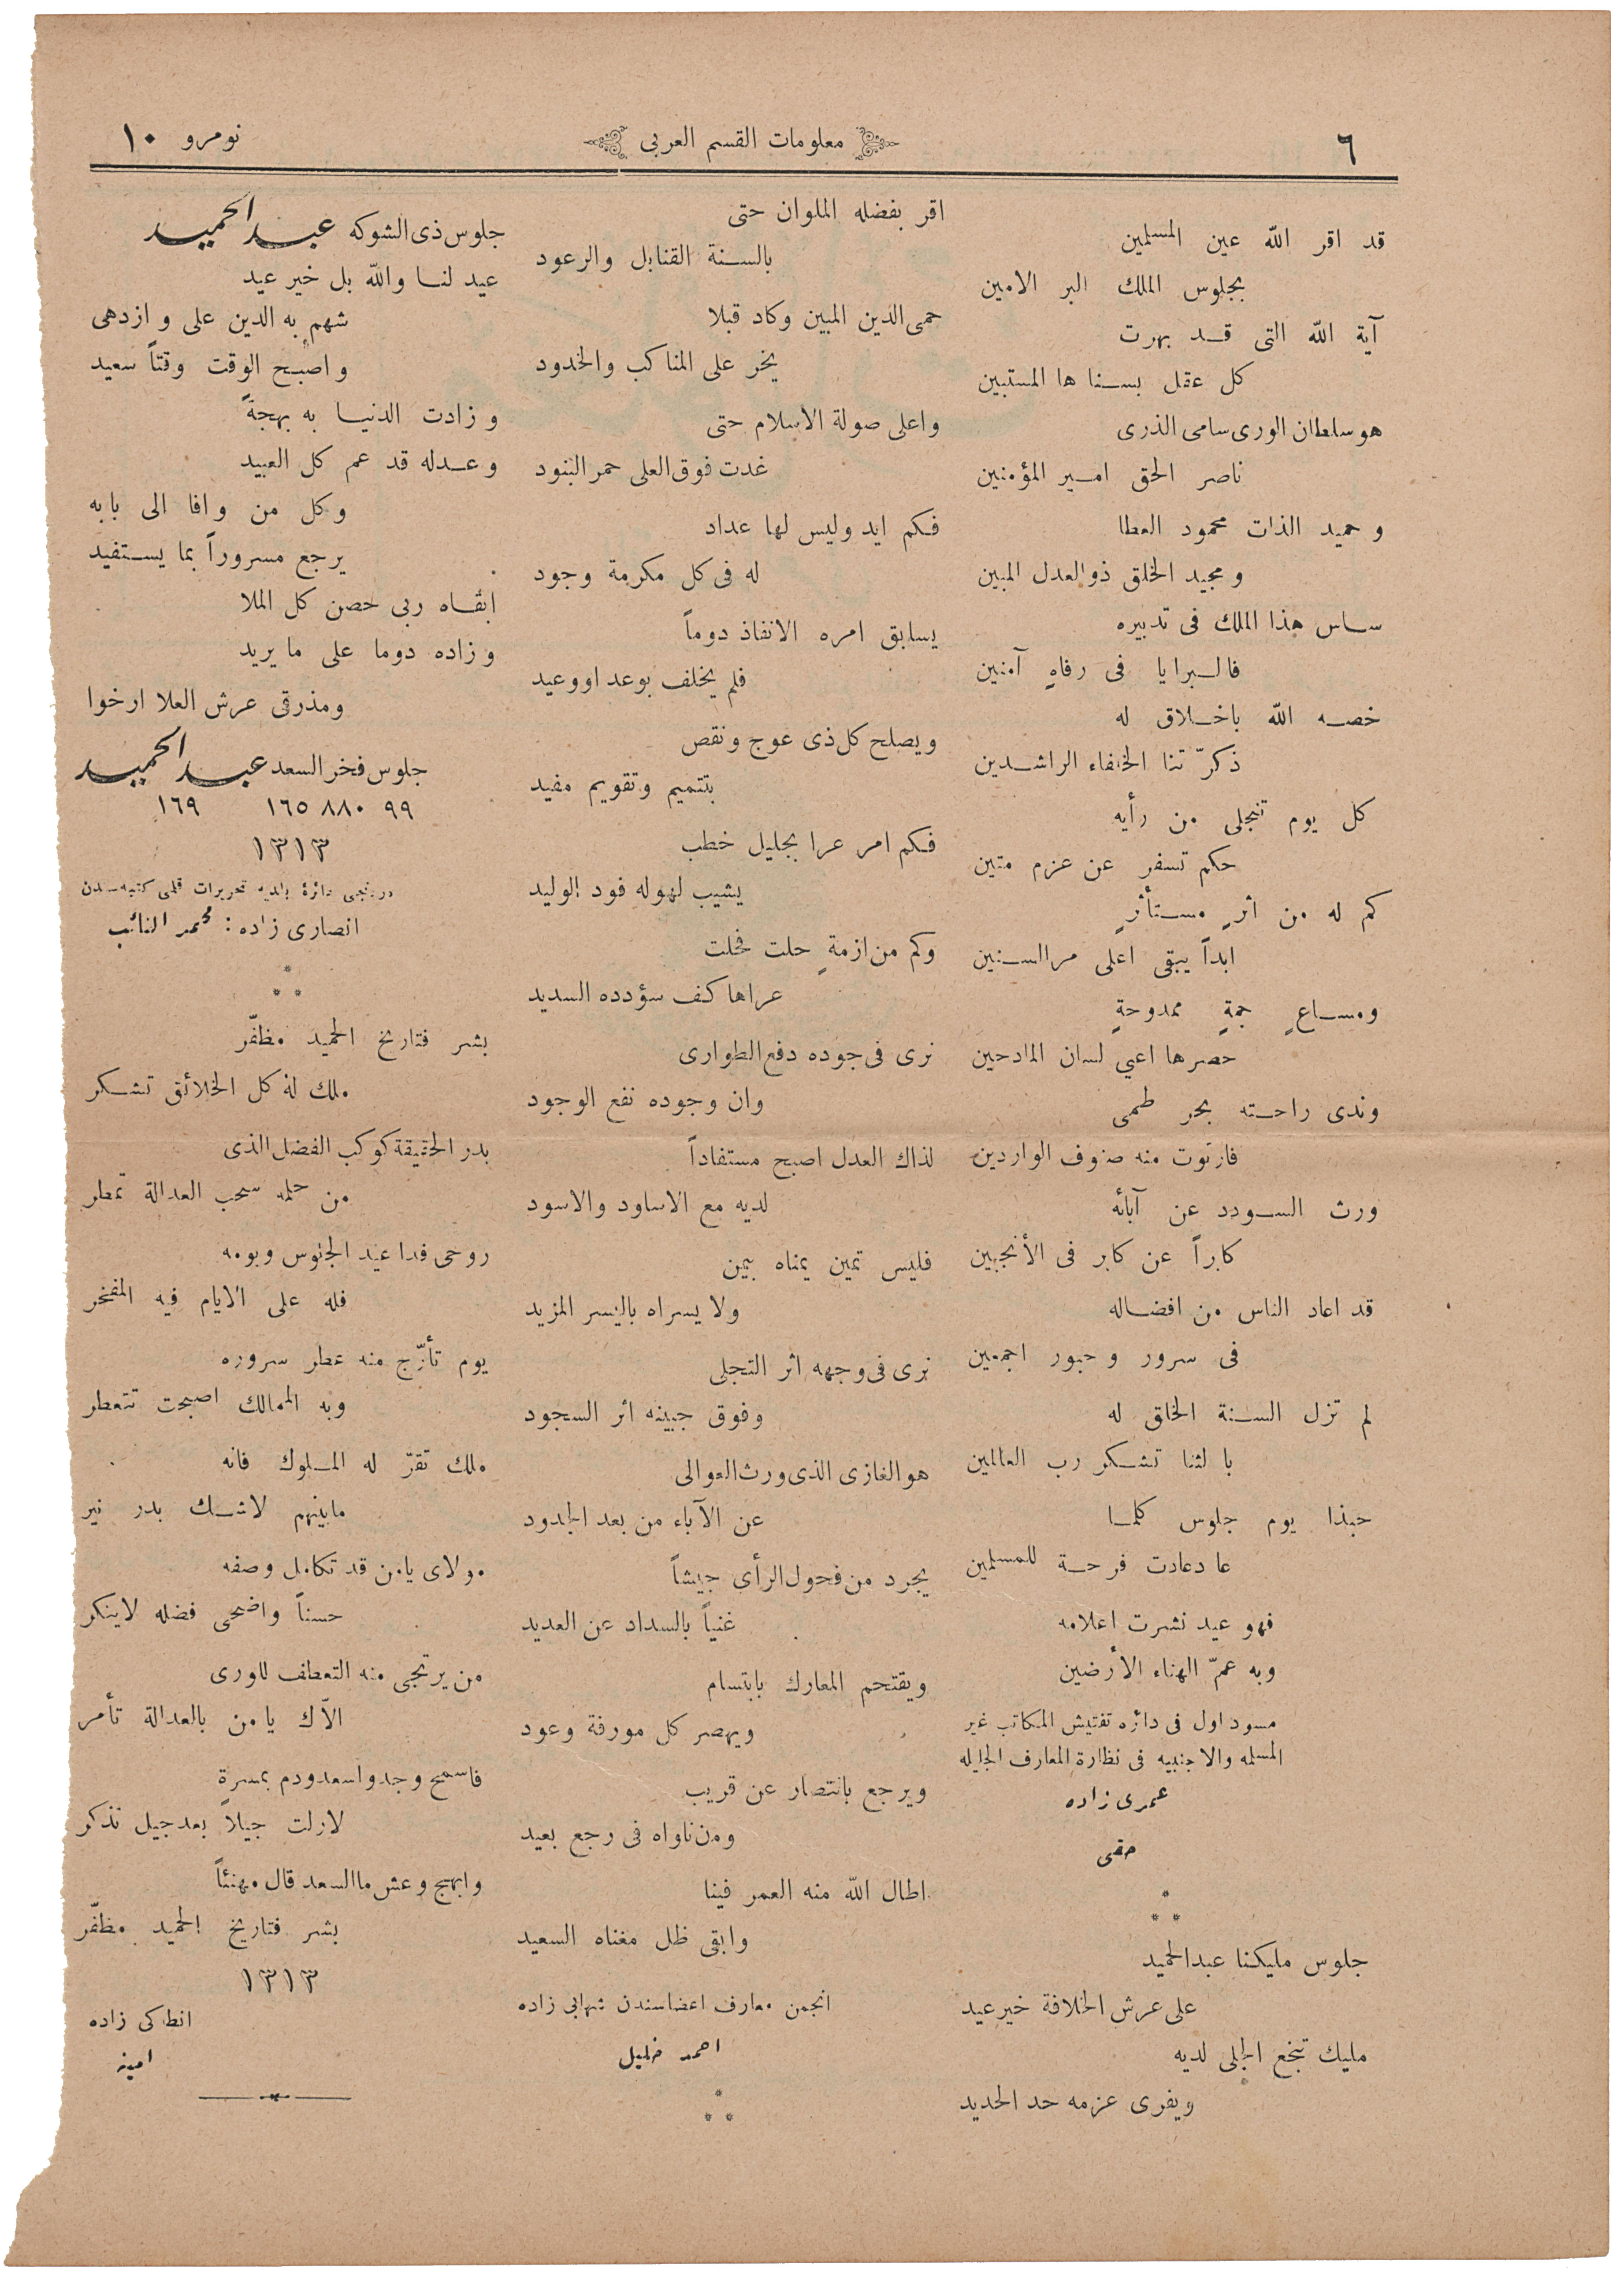 ٦
معلومات القسم العربى
نومرو ١٠
قد اقر الله عين المسلمين
بجلوس الملك البر الامين
آية الله التى قد بهرت
كل عقل بسناها المستبين
هو سلطان الورى سامى الذرى
ناصر الحق امير المؤمنين
وحميد الذات محمود العطا
ومجيد الخلق ذو العدل المبين
ساس هذا الملك فى تدبيره
فالبرايا فى رفاهٍ آمنين
خصه الله باخلاق له
ذكرّتنا الخلفاء الراشدين
كل يوم تنجلى من رأيه
حكم تسفر عن عزم متين
كم له من اثرٍ مستأثرٍ
ابداً يبقى اعلى مر السنين
ومساعٍ جمةٍ ممدوحةٍ
حصرها اعيي لسان المادحين
وندى راحته بحر طمى
فارتوت منه صنوف الواردين
ورث السودد عن آبائه
كابراً عن كابر فى الأنجبين
قد اعاد الناس من افضاله
فى سرور وحبور اجمعين
لم تزل السنة الخلق له
بالثنا تشكر رب العالمين
حبذا يوم جلوس كلما
عاد عادت فرحة للمسلمين
فهو عيد نشرت اعلامه
وبه عمّ الهناء الأرضين
مسود اول فى دائره تفتيش المكاتب غير
المسلمه والاجنبيه فى نظارة المعارف الجليله
عمرى زاده
حقى
جلوس مليكنا عبدالحميد
على عرش الخلافة خير عيد
مليك تبخع الجلى لديه
ويفرى عزمه حد الحديد
اقر بفضله الملوان حتى
بالسنة القنابل والرعود
حمى الدين المبين وكاد قبلا
يخر على المناكب والخدود
واعلى صولة الاسلام حتى
غدت فوق العلى حمر البنود
فكم ايد وليس لها عداد
له فى كل مكرمة وجود
يسابق امره الانفاذ دوماً
فلم يخلف بوعد او وعيد
ويصلح كل ذى عوج ونقص
بتتميم وتقويم مفيد
فكم امر عرا بجليل خطب
يشيب لهوله فود الوليد
وكم من ازمةٍ حلت فحلت
عراها كف سؤدده السديد
نرى فى جوده دفع الطوارى
وان وجوده نفع الوجود
لذاك العدل اصبح مستفاداً
لديه مع الاساود والاسود
فليس تمين يمناه بيمن
ولا يسراه باليسر المزيد
نرى فى وجهه اثر التجلى
وفوق جبينه اثر السجود
هو الغازى الذى ورث العوالى
عن الآباء من بعد الجدود
يجرد من فحول الرأى جيشاً
غنياً بالسداد عن العديد
ويقتحم المعارك بابتسام
ويهصر كل مورفة وعود
ويرجع بانتصار عن قريب
ومن ناواه فى رجع بعيد
اطال الله منه العمر فينا
وابقى ظل مغناه السعيد
انجمن معارف اعضاسندن شهابى زاده
احمد خليل
جلوس ذى الشوكه عبد الحميد
عيد لنا والله بل خير عيد
شهم به الدين على وازدهى
واصبح الوقت وقتاً سعيد
وزادت الدنيا به بهجةً
وعدله قد عم كل العبيد
وكل من وافا الى بابه
يرجع مسروراً بما يستفيد
ابقاه ربى حصن كل الملا
وزاده دوما على ما يريد
ومذ رقى عرش العلا ارخوا
جلوس فخر السعد عبد الحميد
٩٩ ٨٨٠ ١٦٥ ١٦٩
١٣١٣
دائرهٔ بلديه تحريرات قلمى كتبه سندن
انصارى زاده : محمد النائب
بشر فتاريخ الحميد مظفّر
ملك له كل الخلائق تشكر
بدر الحقيقة كوكب الفضل الذى
من حلمه سحب العدالة تمطر
روحى فدا عيد الجلوس ويومه
فله على الايام فيه المفخر
يوم تأرّج منه عطر سروره
وبه الممالك اصبحت تتعطر
ملك تقرّ له الملوك فانه
مابينهم لاشك بدر نير
مولاى يا من قد تكامل وصفه
حسناً واضحى فضله لاينكر
من يرتجى منه التعطف للورى
الاّك يا من بالعدالة تأمر
فاسمح وجد واسعد ودم بمسرةٍ
لازلت جيلاً بعد جيل تذكر
وابهج وعش ما السعد قال مهنئاً
بشر فتاريخ الحميد مظفّر
١٣١٣
انطاكى زاده
امين